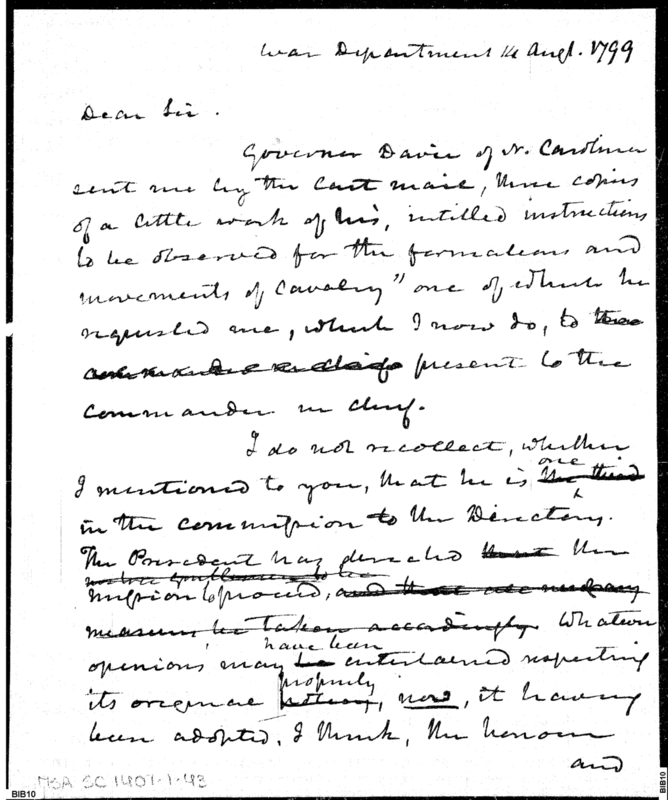 War Department 14 Augt. 1799
Dear Sir.
Governor Davie of N. Carolina
sent me by the last mail, three copies
of a little work of his, intitled instructions
to be observed for the formations and
movements of Cavalry" one of which he
requested me, which I now do, to the
commander in chief present to the
commander in chief.
I do not recollect, whether
one
I mentioned to you, that he is the third
in the commission to the Directory.
The President has directed that the
mission to proceed, and that all necessary
measures be taken accordingly. Whatever
have been
opinions may be entertained respecting
propriety
its original policy, now, it having
been adopted, I think, the honour
and
MSA SC 1407-1-43
BIB10
BIB10